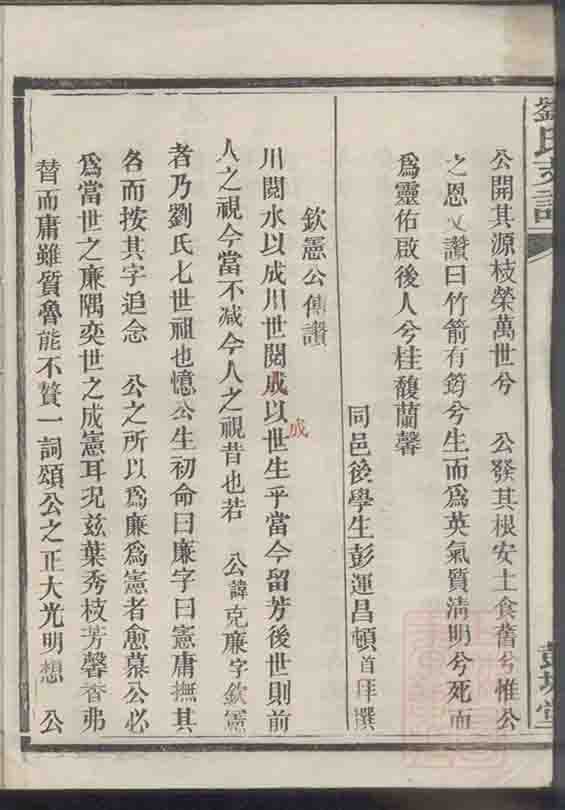 劉氏支譜
彭城堂
公開其源枝榮萬世兮　公發其根安土食舊兮惟公
之恩又讚曰竹箭有筠兮生而爲英氣質清明兮死而
爲靈佑啟後人兮桂馥蘭馨
同邑後學生彭運昌頓首拜撰
欽憲公傳讚
川閱水以成川世閱成以世生乎當今留芳後世則前
成
人之視今當不减今人之視昔也若　公諱克廉字欽憲
者乃劉氏七世祖也憶公生初命曰廉字曰憲庸撫其
名而按其字追念　公之所以爲廉爲憲者愈慕公必
爲當世之廉隅奕世之成憲耳況兹葉秀枝芳馨香弗
替而庸雖質魯能不贊一詞頌公之正大光明想　公